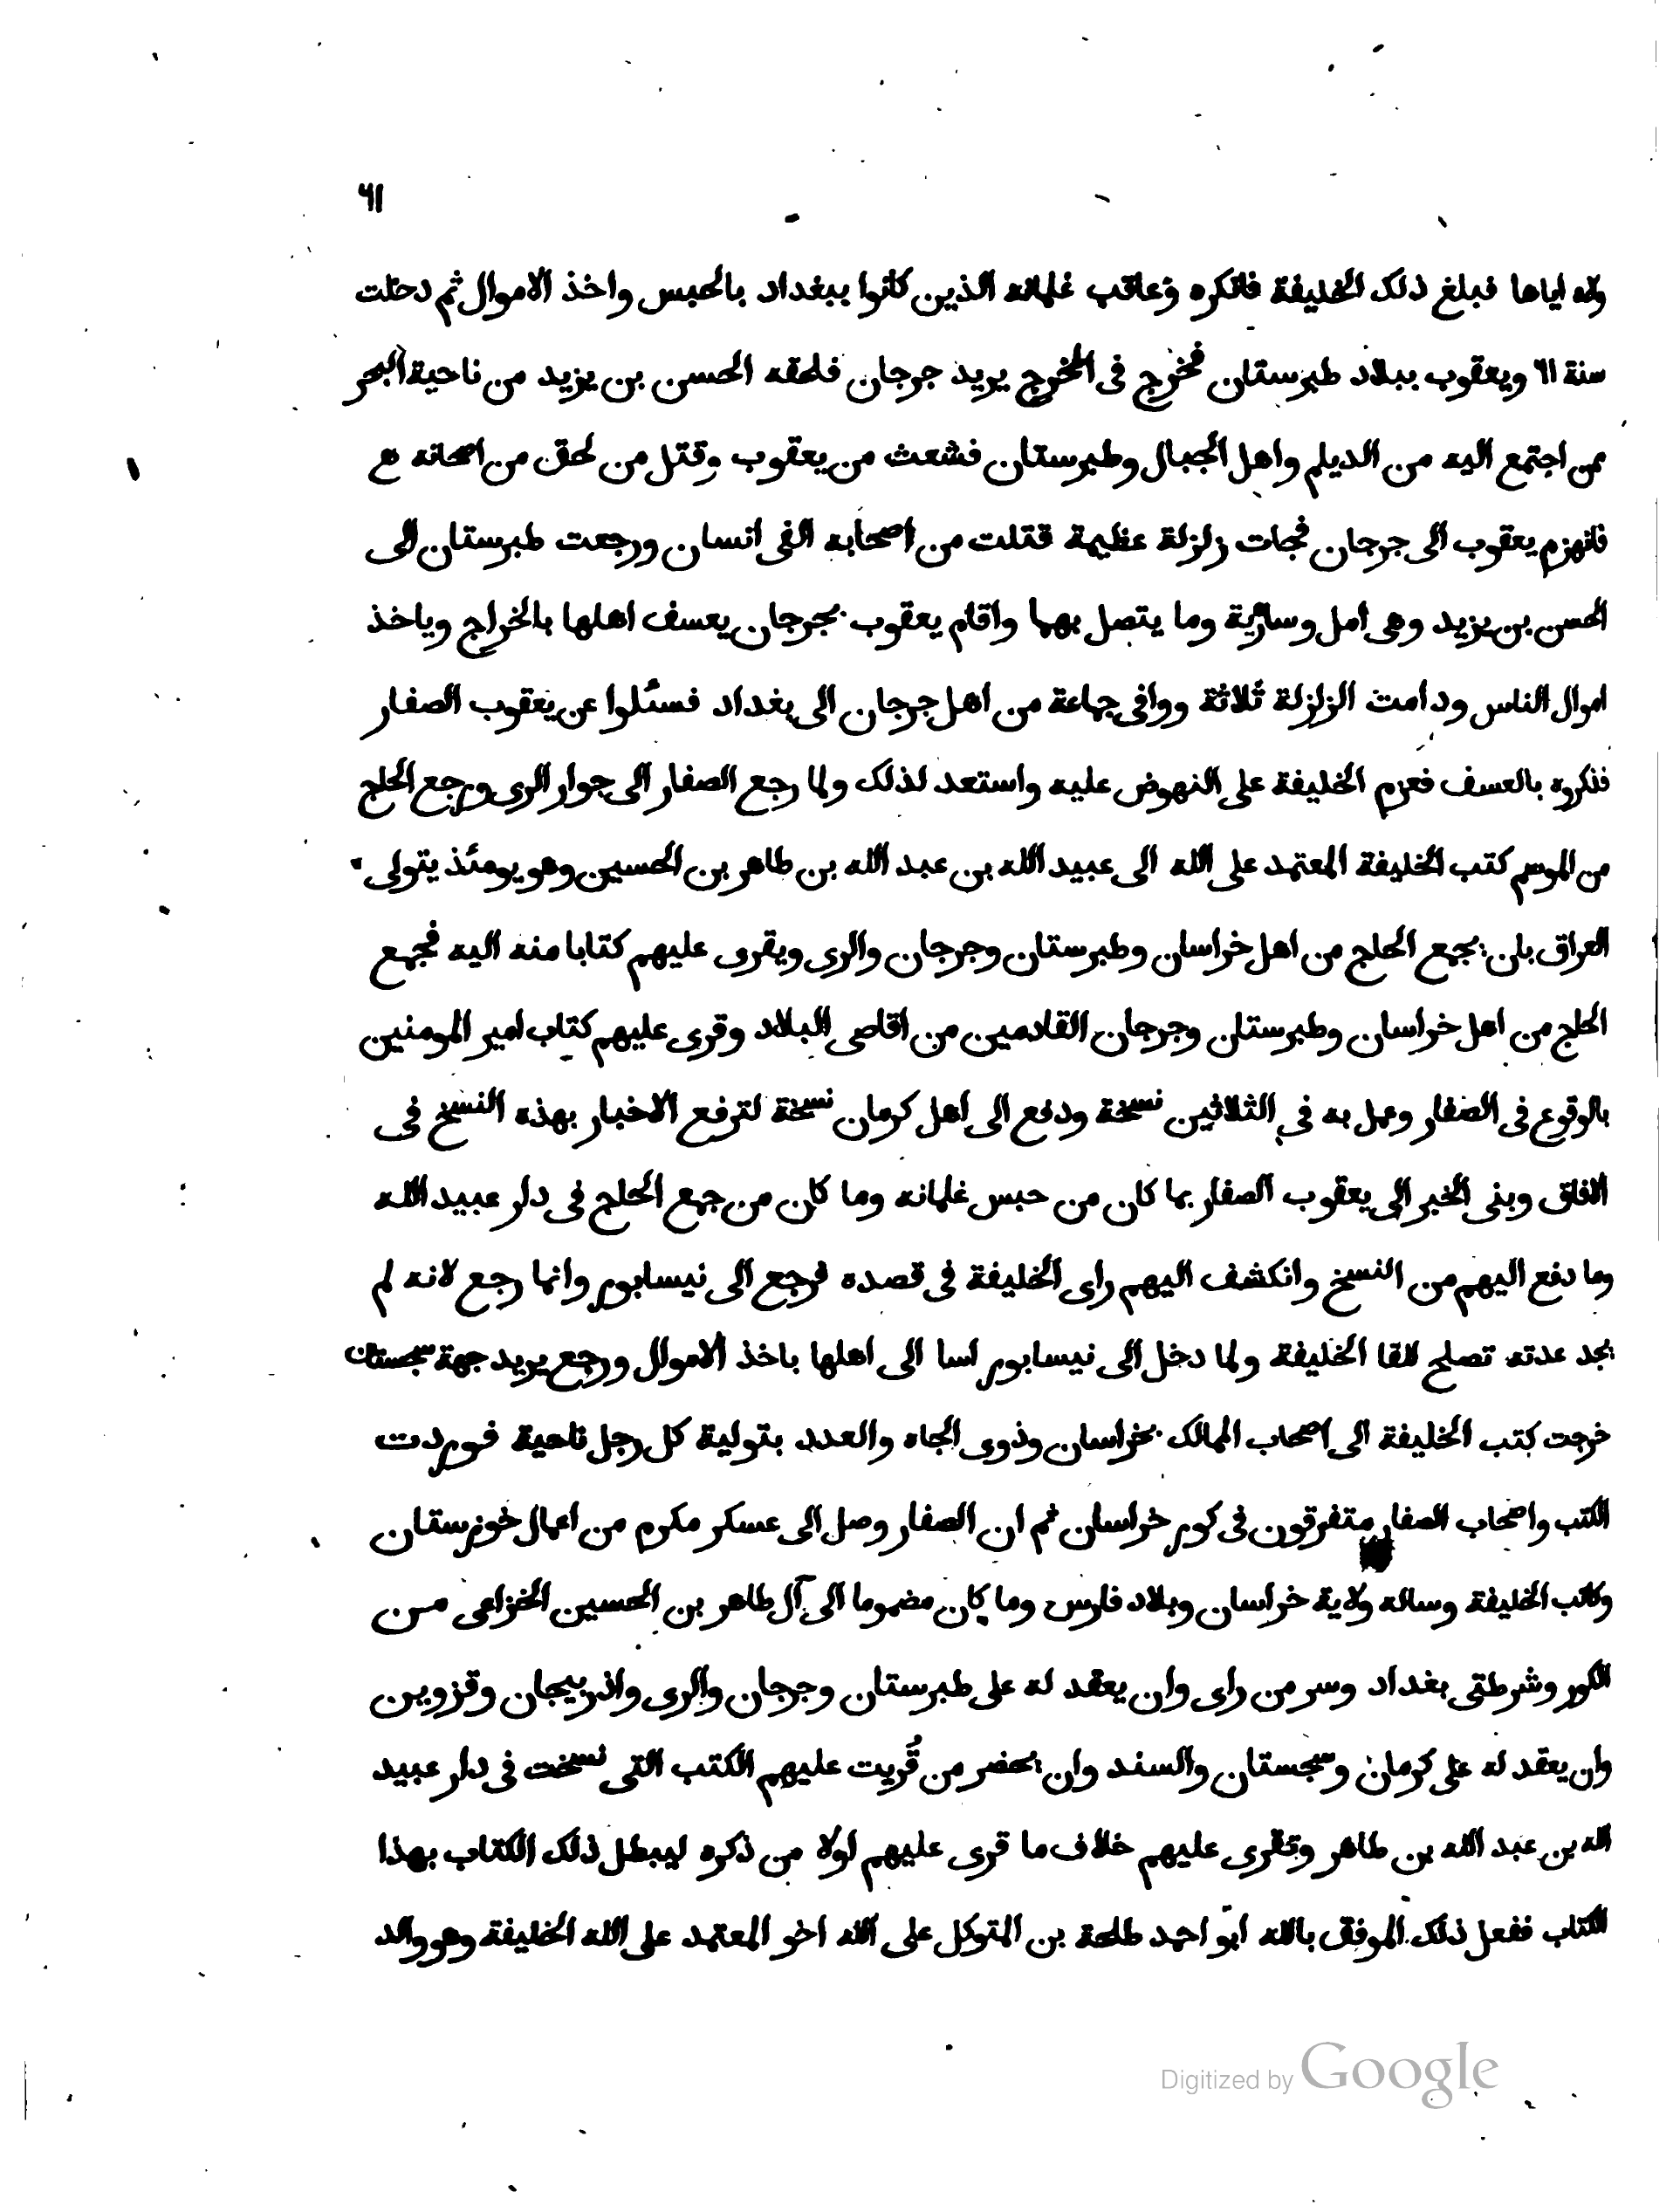 ٦١
ولاه اياها فبلغ ذلك الخليفة فانكره وعاقب غلمانه الذين كانوا ببغداد بالحبس واخذ الاموال ثم دخلت
سنة ٦١ ويعقوب ببلاد طبرستان فخرج فى المخرج يريد جرجان فلحقه الحسن بن يزيد من ناحية البحر
بمن اجتمع اليه من الديلم واهل الجبال وطبرستان فشعث من يعقوب وقتل من لحق من اصحابه
فانهزم يعقوب الى جرجان فجات زلزلة عظيمة قتلت من اصحابه الفى انسان ورجعت طبرستان الى
الحسن بن يزيد وهى امل وسارية وما يتصل بهما واقام يعقوب بجرجان يعسف اهلها بالخراج وياخذ
اموال الناس ودامت الزلزلة ثلاثة ووافى جماعة من اهل جرجان الى بغداد فسئلوا عن يعقوب الصفار
فذكروه بالعسف فعزم الخليفة على النهوض عليه واستعد لذلك ولما رجع الصفار الى جوار الرى ورجع الحاج
من الموسم كتب الخليفة المعتمد على الله الى عبيد الله بن عبد الله بن طاهر بن الحسين وهو يومئذ يتولى
العراق بان يجمع الحاج من اهل خراسان وطبرستان وجرجان والرى ويقرى عليهم كتابا منه اليه فجمع
الحاج من اهل خراسان وطبرستان وجرجان القادمين من اقاصى البلاد وقرى عليهم كتاب امير المومنين
بالوقوع فى الصفار وعمل به فى الثلاثين نسخة ودفع الى اهل كرمان نسخة لترفع الاخبار بهذه النسخ فى
الافاق وبنى الخبر الى يعقوب الصفار بما كان من حبس غلمانه وما كان من جمع الحاج فى دار عبيد الله
وما دفع اليهم من النسخ وانكشف اليهم راى الخليفة فى قصده فرجع الى نيسابور وانما رجع لانه لم
يجد عدته تصلح للقا الخليفة ولما دخل الى نيسابور اسا الى اهلها باخذ الاموال ورجع يريد جهة سجستان
خرجت كتب الخليفة الى اصحاب الممالك بخراسان وذوى الجاه والعدد بتولية كل رجل ناحية فوردت
الكتب واصحاب الصفار متفرقون فى كور خراسان ثم ان الصفار وصل الى عسكر مكرم من اعمال خوزستان
وكاتب الخليفة وساله ولاية خراسان وبلاد فارس وما كان مضموما الى آل طاهر بن الحسين الخزاعى من
الكور وشرطتى بغداد وسر من راى وان يعقد له على طبرستان وجرجان والرى واذربيجان وقزوين
وان يعقد له على كرمان وسجستان والسند وان يحضر من قُريت عليهم الكتب التى نسخت فى دار عبيد
الله بن عبد الله بن طاهر وتقرى عليهم خلاف ما قرى عليهم اولا من ذكره ليبطل ذلك الكتاب بهذا
الكتاب ففعل ذلك الموفق بالله ابو احمد طلحة بن المتوكل على الله اخو المعتمد على الله الخليفة وهو والد
Digitized by Google